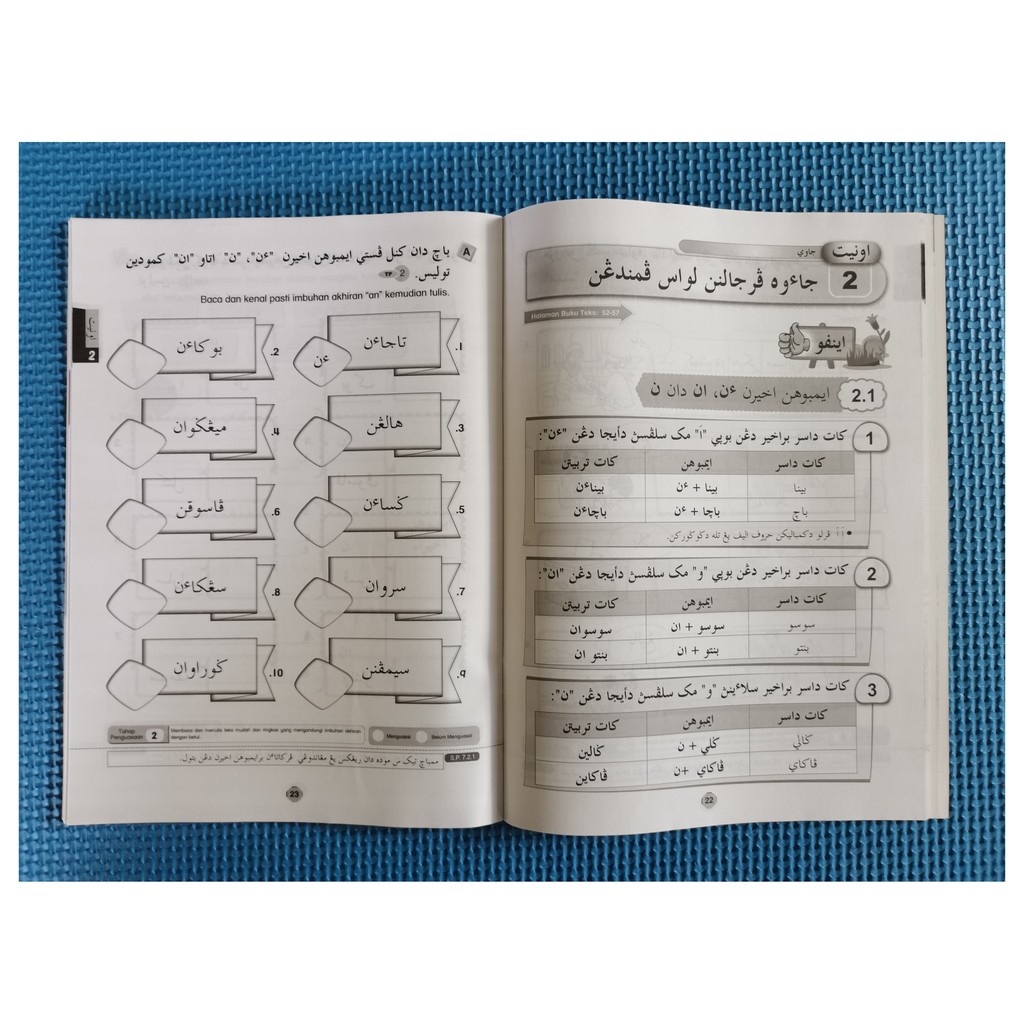 اونيت 2
جاوي
جاءوه ڤرجالنن لواس ڤمندڠن
Halaman Buku Teks: 52-57
اينفو
2.1 ايمبوهن اخيرن ءن، ان دان ن
1 كات داسر براخير دڠن بوڽي "ا" مک سلڤسڽ دأيجا دڠن "ءن":
كات داسر ايمبوهن كات تربيتن
بينا بينا + ءن بيناءن
باچ باچا + ءن باچاءن
• ڤرلو دكمباليكن حروف اليف يڠ تله دݢوݢوركن.
2 كات داسر براخير دڠن بوڽي "و" مک سلڤسڽ دأيجا دڠن "ان":
كات داسر ايمبوهن كات تربيتن
سوسو سوسو + ان سوسوان
بنتو بنتو + ان بنتو ان
3 كات داسر براخير سلاءينڽ "و" مک سلڤسڽ دأيجا دڠن "ن":
كات داسر ايمبوهن كات تربيتن
ݢالي ݢلي + ن ݢالين
ڤاكاي ڤاكاي +ن ڤاكاين
22
A باچ دان كنل ڤستي ايمبوهن اخيرن "ءن"، "ن" اتاو "ان" كمودين
توليس. TP 2
Baca dan kenal pasti imbuhan akhiran "an" kemudian tulis.
اونيت 2
1. تاجاءن ءن
2. بوكاءن
3. هالڠن
4. ميڠݢوان
5. ݢساءن
6. ڤاسوقن
7. سروان
8. سڠكاءن
9. سيمڤنن
10. ݢوراوان
Tahap Penguasaan 2
Membaca dan menulis teks mudah dan ringkas yang mengandungi imbuhan akhiran
dengan betul.
Menguasai
Belum Menguasai
S.P. 7.2.1 ممباچ تيک س موده دان ريڠكس يڠ مڠاندوڠي ڤركاتاءن برايمبوهن اخيرن دڠن بتول.
23